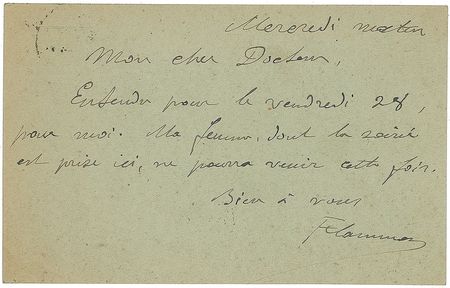 Mercredi matin
Mon cher Docteur,
Entendu pour le vendredi 28,
pour moi. Ma femme, dont la soirée
est prise ici, ne pourra venir cette fois.
Bien à vous
Flammarion